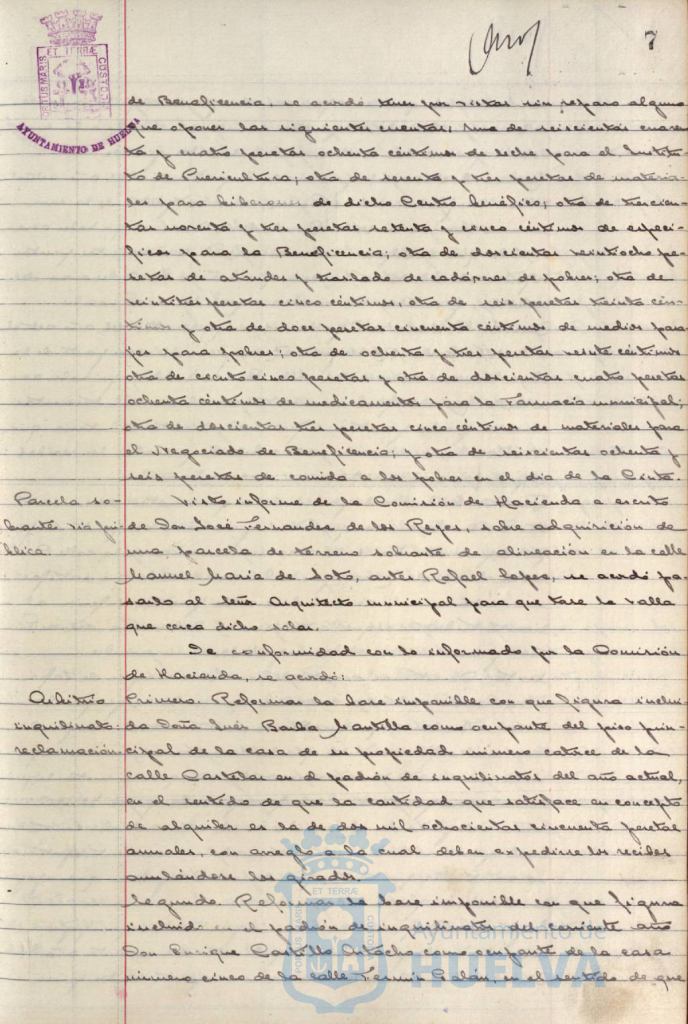 7
PORTUS MARIS ET TERRÆ CUSTODIA
AYUNTAMIENTO DE HUELVA
de Beneficencia, se acordó tener por vistas sin reparo alguno
que oponer las siguientes cuentas; una de seiscientas cuaren-
ta y cuatro pesetas ochenta céntimos de leche para el Institu-
to de Puericultura; otra de sesenta y tres pesetas de materia-
les para biberones de dicho Centro benéfico; otra de trescien-
tas noventa y tres pesetas setenta y cinco céntimos de especí-
ficos para la Beneficencia; otra de doscientas veintiocho pe-
setas de ataudes y traslado de cadáveres de pobres; otra de
veintitres pesetas cinco céntimos, otra de seis pesetas treinta cén-
timos y otra de doce pesetas cincuenta céntimos de medios pasa-
jes para pobres; otra de ochenta y tres pesetas veinte céntimos
otra de ciento cinco pesetas y otra de doscientas cuatro pesetas
ochenta céntimos de medicamentos para la Farmacia municipal;
otra de doscientas tres pesetas cinco céntimos de materiales para
el Negociado de Beneficencia; y otra de seiscientas ochenta y
seis pesetas de comida a los pobres en el dia de la Cinta.
Parcela so-
brante vía pú-
blica.
Visto informe de la Comisión de Hacienda a escrito
de Don José Fernandez de los Reyes, sobre adquisición de
una parcela de terreno sobrante de alineación en la calle
Manuel Maria de Soto, antes Rafael Lopez, se acordó pa-
sarlo al Señor Arquitecto municipal para que tase la valla
que cerca dicho solar.
De conformidad con lo informado por la Comisión
de Hacienda, se acordó:
Arbitrio
inquilinato:
reclamación.
Primero. Reformar la base imponible con que figura inclui-
da Doña Inés Barba Mantilla como ocupante del piso prin-
cipal de la casa de su propiedad número catorce de la
calle Castelar en el padrón de inquilinatos del año actual,
en el sentido de que la cantidad que satisface en concepto
de alquiler es la de dos mil ochocientas cincuenta pesetas
anuales, con arreglo a la cual deben expedirse los recibos
anulándose los girados.
Segundo. Reformar la base imponible con que figura
incluido en el padrón de inquilinatos del corriente año
Don Enrique Castillo como ocupante de la casa
número cinco de la calle Fermin Galán, en el sentido de que
PORTUS MARIS ET TERRÆ CUSTODIA
Ayuntamiento de
HUELVA